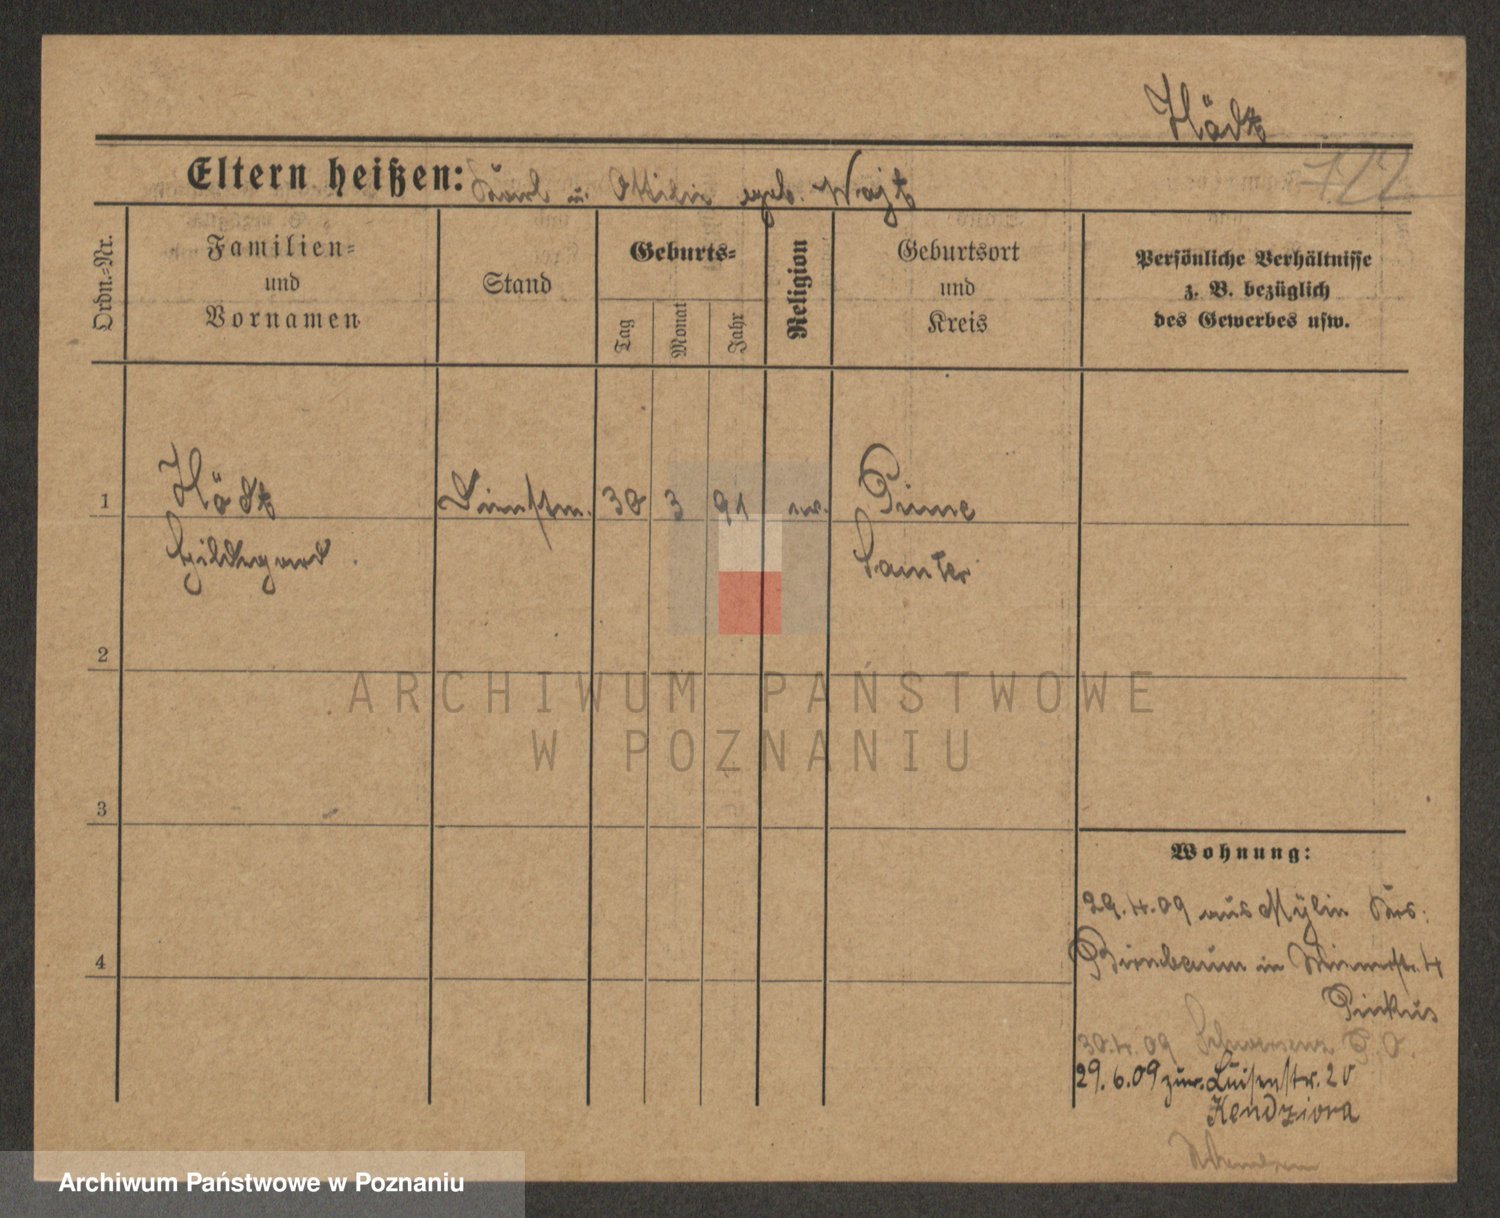 Hädt
Eltern heißen: Karl u. Ottilie geb. Wojt
Ordn.-Nr.
Familien=
und
Vornamen
Stand
Geburts=
Tag
Monat
Jahr
Religion
Geburtsort
und
Kreis
Persönliche Verhältnisse
z. B. bezüglich
des Gewerbes usw.
1 Hädt Dienstm. 30 3 91 ev. Pinne
Hildegard Samter
2
3
4
Wohnung:
29.4.09 aus Mylin Krs.
Birnbaum in 4
Pinkus
30.4.09 Schwersenz P. O.
29.6.09 zur. Luisenstr. 20
Kendziora
ARCHIWUM PAŃSTWOWE
W POZNANIU
Archiwum Państwowe w Poznaniu